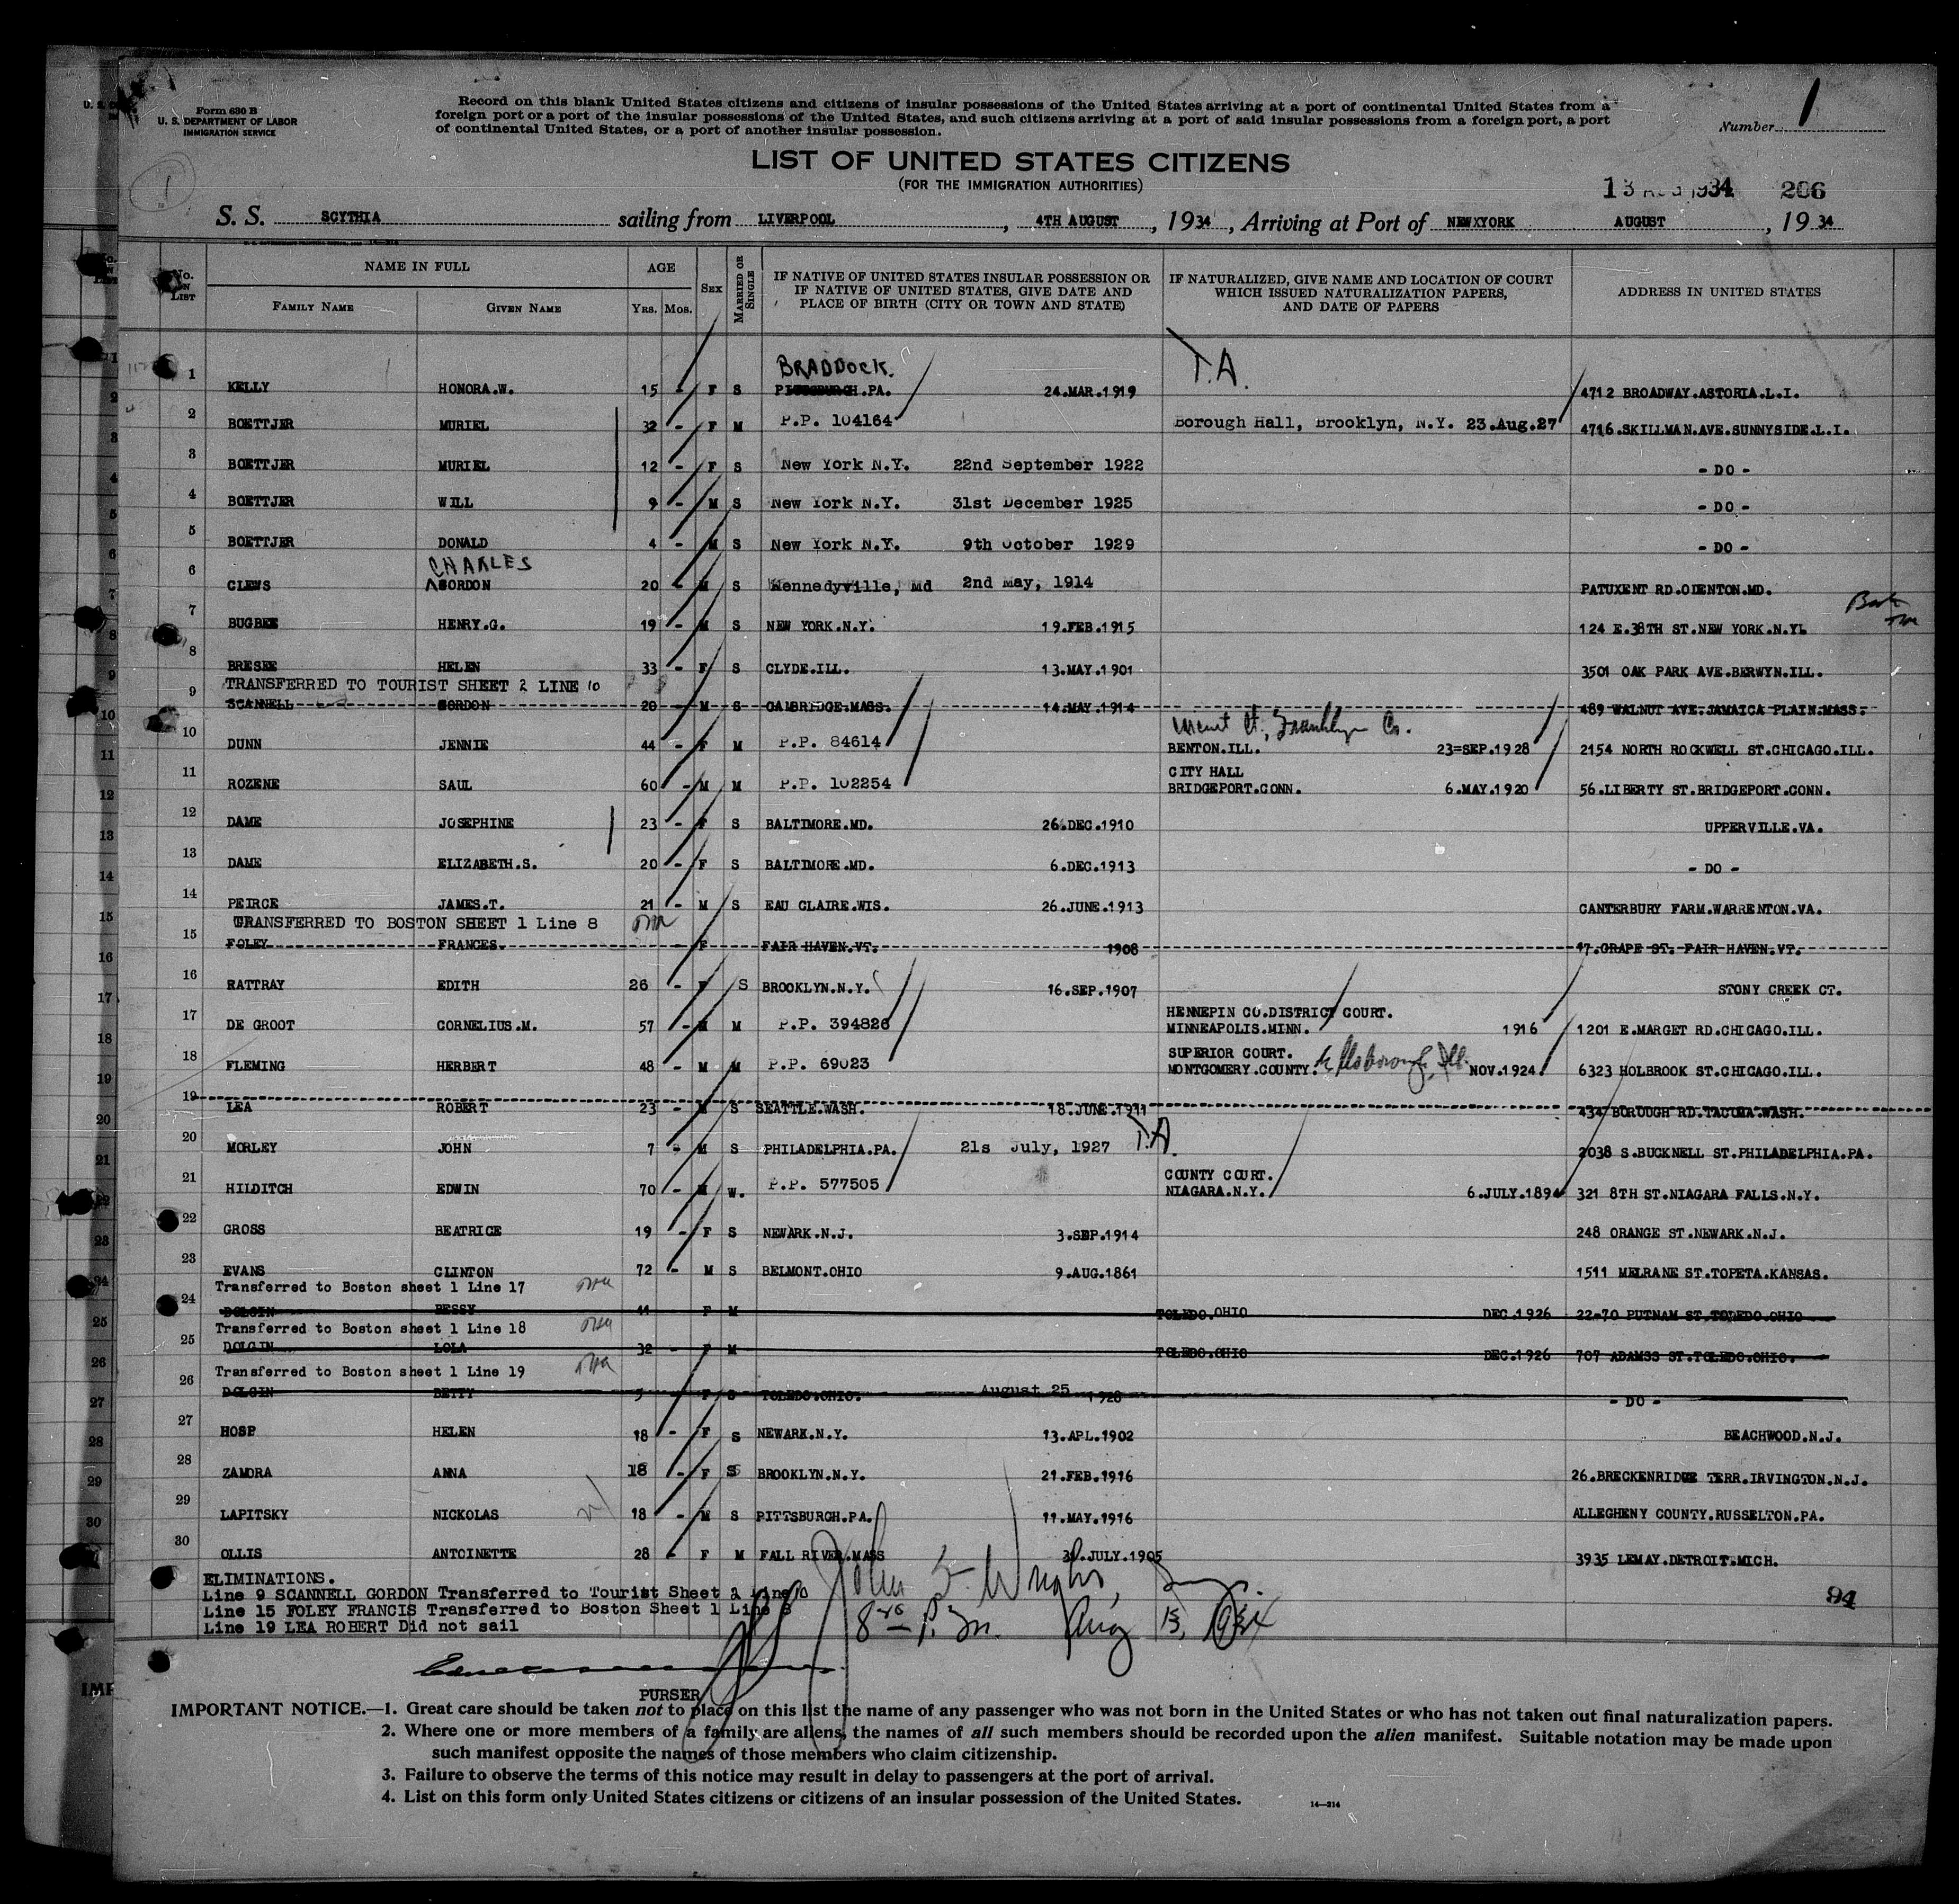 Form 630 B
U. S. DEPARTMENT OF LABOR
IMMIGRATION SERVICE
Record on this blank United States citizens and citizens of insular possessions of the United States arriving at a port of continental United States from a
foreign port or a port of the insular possessions of the United States, and such citizens arriving at a port of said insular possessions from a foreign port, a port
of continental United States, or a port of another insular possession.
Number 1
LIST OF UNITED STATES CITIZENS
(FOR THE IMMIGRATION AUTHORITIES)
1
13 AUG 1934 206
S. S. SCYTHIA sailing from LIVERPOOL, 4TH AUGUST, 1934, Arriving at Port of NEWXYORK AUGUST, 1934
No. on List
NAME IN FULL
FAMILY NAME GIVEN NAME
AGE
YRS. MOS.
SEX
MARRIED OR SINGLE
IF NATIVE OF UNITED STATES INSULAR POSSESSION OR
IF NATIVE OF UNITED STATES, GIVE DATE AND
PLACE OF BIRTH (CITY OR TOWN AND STATE)
IF NATURALIZED, GIVE NAME AND LOCATION OF COURT
WHICH ISSUED NATURALIZATION PAPERS,
AND DATE OF PAPERS
ADDRESS IN UNITED STATES
BRADDOCK. T.A.
1 KELLY HONORA.W. 15 - F S PITTSBURGH.PA. 24.MAR.1919 4712 BROADWAY.ASTORIA.L.I.
2 BOETTJER MURIEL 32 - F M P.P. 104164 Borough Hall, Brooklyn, N.Y. 23.Aug.27 4716.SKILLMAN.AVE.SUNNYSIDE.L.I.
3 BOETTJER MURIEL 12 - F S New York N.Y. 22nd September 1922 - DO -
4 BOETTJER WILL 9 - M S New York N.Y. 31st December 1925 - DO -
5 BOETTJER DONALD 4 - M S New York N.Y. 9th October 1929 - DO -
CHARLES
6 CLEWS GORDON 20 - M S Kennedyville, Md 2nd May, 1914 PATUXENT RD.ODENTON.MD.
7 BUGBEE HENRY.G. 19 - M S NEW YORK.N.Y. 19.FEB.1915 124 E.38TH ST.NEW YORK.N.Y.
8 BRESEE HELEN 33 - F S CLYDE.ILL. 13.MAY.1901 3501 OAK PARK AVE.BERWYN.ILL.
TRANSFERRED TO TOURIST SHEET 2 LINE 10
9 SCANNELL GORDON 20 - M S CAMBRIDGE.MASS. 14.MAY.1914 489 WALNUT AVE.JAMAICA PLAIN.MASS.
Circuit Ct., Franklyn Co.
10 DUNN JENNIE 44 - F M P.P. 84614 BENTON.ILL. 23=SEP.1928 2154 NORTH ROCKWELL ST.CHICAGO.ILL.
CITY HALL
11 ROZENE SAUL 60 - M M P.P. 102254 BRIDGEPORT.CONN. 6.MAY.1920 56.LIBERTY ST.BRIDGEPORT.CONN.
12 DAME JOSEPHINE 23 - F S BALTIMORE.MD. 26.DEC.1910 UPPERVILLE.VA.
13 DAME ELIZABETH.S. 20 - F S BALTIMORE.MD. 6.DEC.1913 - DO -
14 PEIRCE JAMES.T. 21 - M S EAU CLAIRE.WIS. 26.JUNE.1913 CANTERBURY FARM.WARRENTON.VA.
TRANSFERRED TO BOSTON SHEET 1 Line 8
15 FOLEY FRANCES. - F FAIR HAVEN.VT. 1908 17.GRAPE ST. FAIR HAVEN.VT.
16 RATTRAY EDITH 26 - F S BROOKLYN.N.Y. 16.SEP.1907 STONY CREEK CT.
HENNEPIN CO.DISTRICT COURT.
17 DE GROOT CORNELIUS.M. 57 - M M P.P. 394826 MINNEAPOLIS.MINN. 1916 1201 E.MARGET RD.CHICAGO.ILL.
SUPERIOR COURT.
18 FLEMING HERBERT 48 - M M P.P. 69023 MONTGOMERY.COUNTY. Hillsborough, Ill. NOV.1924. 6323 HOLBROOK ST.CHICAGO.ILL.
19 LEA ROBERT 23 - M S SEATTLE.WASH. 18.JUNE.1911 434 BOROUGH RD.TACOMA.WASH.
20 MORLEY JOHN 7 - M S PHILADELPHIA.PA. 21s July, 1927 T.A. 2038 S.BUCKNELL ST.PHILADELPHIA.PA.
COUNTY COURT.
21 HILDITCH EDWIN 70 - M W. P.P. 577505 NIAGARA.N.Y. 6.JULY.1894 321 8TH ST.NIAGARA FALLS.N.Y.
22 GROSS BEATRICE 19 - F S NEWARK.N.J. 3.SEP.1914 248 ORANGE ST.NEWARK.N.J.
23 EVANS CLINTON 72 - M S BELMONT.OHIO 9.AUG.1861 1511 MELRANE ST.TOPETA.KANSAS.
Transferred to Boston sheet 1 Line 17
24 DOLGIN BESSY 41 F M TOLEDO.OHIO DEC.1926 22-70 PUTNAM ST.TOLEDO.OHIO
Transferred to Boston sheet 1 Line 18
25 DOLGIN LOLA 32 - F M TOLEDO.OHIO DEC.1926 707 ADAMSS ST.TOLEDO.OHIO.
Transferred to Boston sheet 1 Line 19
26 DOLGIN BETTY 5 - F S TOLEDO.OHIO. August 25 1928 - DO -
27 HOSP HELEN 18 - F S NEWARK.N.Y. 13.APL.1902 BEACHWOOD.N.J.
28 ZAMORA ANNA 18 - F S BROOKLYN.N.Y. 21.FEB.1916 26.BRECKENRIDGE TERR.IRVINGTON.N.J.
29 LAPITSKY NICKOLAS 18 - M S PITTSBURGH.PA. 11.MAY.1916 ALLEGHENY COUNTY.RUSSELTON.PA.
30 OLLIS ANTOINETTE 28 - F M FALL RIVER.MASS 31.JULY.1905 3935 LEMAY.DETROIT.MICH.
ELIMINATIONS.
Line 9 SCANNELL GORDON Transferred to Tourist Sheet 2 Line 10
Line 15 FOLEY FRANCIS Transferred to Boston Sheet 1 Line 8
Line 19 LEA ROBERT Did not sail
John F. Wright,
8 P.M. Aug 13, 1934
94
PURSER
IMPORTANT NOTICE.—1. Great care should be taken not to place on this list the name of any passenger who was not born in the United States or who has not taken out final naturalization papers.
2. Where one or more members of a family are aliens, the names of all such members should be recorded upon the alien manifest. Suitable notation may be made upon
such manifest opposite the names of those members who claim citizenship.
3. Failure to observe the terms of this notice may result in delay to passengers at the port of arrival.
4. List on this form only United States citizens or citizens of an insular possession of the United States.
14—214